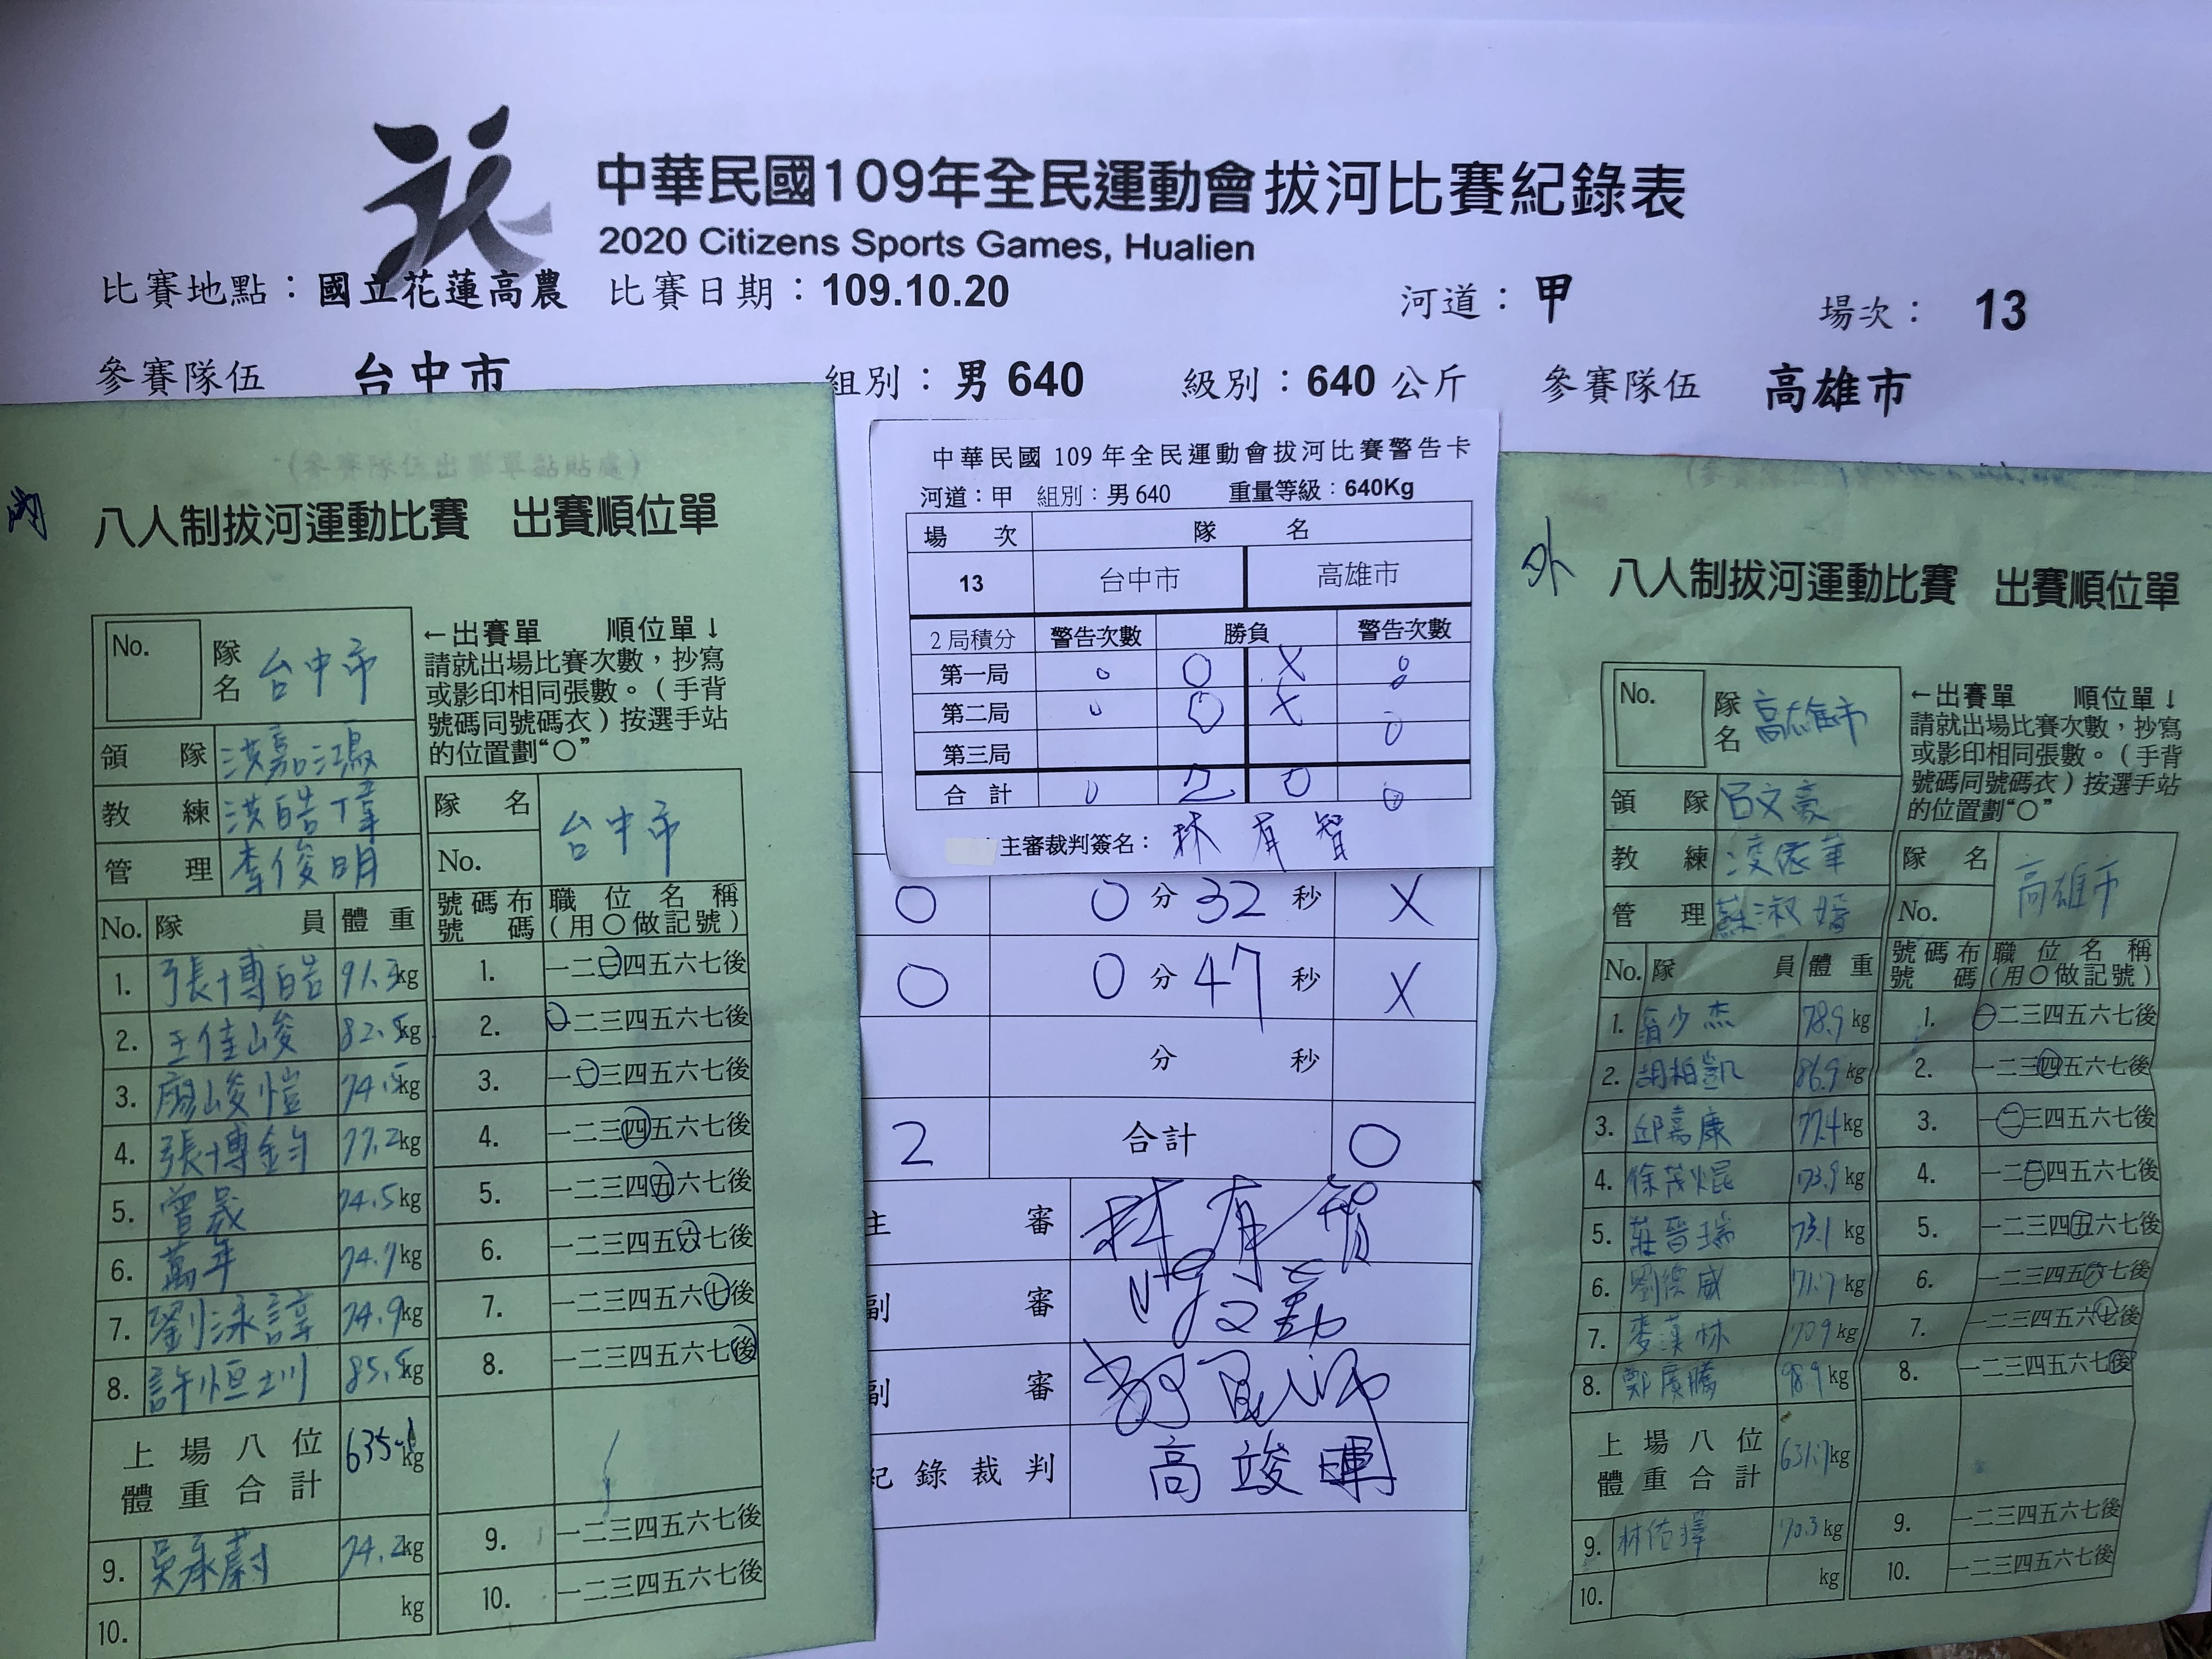 中華民國109年全民運動會拔河比賽紀錄表
2020 Citizens Sports Games, Hualien
比賽地點：國立花蓮高農 比賽日期：109.10.20 河道：甲 場次： 13
參賽隊伍 台中市 組別：男 640 級別：640 公斤 參賽隊伍 高雄市
(參賽隊伍出賽單黏貼處)
內
八人制拔河運動比賽 出賽順位單
No. 隊名 台中市
←出賽單 順位單↓
請就出場比賽次數，抄寫
或影印相同張數。（手背
號碼同號碼衣）按選手站
的位置劃“○”
領隊 洪嘉鴻
教練 洪皓瑋
管理 李俊明
隊名 台中市
No.
No. 隊員 體重 號碼布號碼 職位名稱（用○做記號）
1. 張博皓 91.3kg 1. 一二三四五六七後
2. 王佳峻 82.5kg 2. 一二三四五六七後
3. 廖峻愷 74.5kg 3. 一二三四五六七後
4. 張博鈞 77.2kg 4. 一二三四五六七後
5. 曾晟 74.5kg 5. 一二三四五六七後
6. 萬年 74.7kg 6. 一二三四五六七後
7. 劉泳諄 74.9kg 7. 一二三四五六七後
8. 許恒圳 85.5kg 8. 一二三四五六七後
上場八位
體重合計 635.1kg
9. 吳承蔚 74.2kg 9. 一二三四五六七後
10. kg 10. 一二三四五六七後
中華民國 109 年全民運動會拔河比賽警告卡
河道：甲 組別：男 640 重量等級：640Kg
場次 隊名
13 台中市 高雄市
2 局積分 警告次數 勝負 警告次數
第一局 0 O X 0
第二局 0 O X 0
第三局 0
合計 0 2 0 0
主審裁判簽名： 林有智
O 0 分 32 秒 X
O 0 分 47 秒 X
分 秒
2 合計 0
主審 林有智
副審
副審
紀錄裁判 高竣暉
外
八人制拔河運動比賽 出賽順位單
No. 隊名 高雄市
←出賽單 順位單↓
請就出場比賽次數，抄寫
或影印相同張數。（手背
號碼同號碼衣）按選手站
的位置劃“○”
領隊 呂文豪
教練 凌依華
管理 蘇淑嬌
隊名 高雄市
No.
No. 隊員 體重 號碼布號碼 職位名稱（用○做記號）
1. 翁少杰 78.9kg 1. 一二三四五六七後
2. 胡柏凱 86.9kg 2. 一二三四五六七後
3. 邱嘉康 77.4kg 3. 一二三四五六七後
4. 徐茂焜 73.9kg 4. 一二三四五六七後
5. 莊晉瑞 73.1kg 5. 一二三四五六七後
6. 劉德威 71.7kg 6. 一二三四五六七後
7. 麥漢林 70.9kg 7. 一二三四五六七後
8. 鄭廣騰 98.9kg 8. 一二三四五六七後
上場八位
體重合計 631.7kg
9. 林佑擇 70.3kg 9. 一二三四五六七後
10. kg 10. 一二三四五六七後